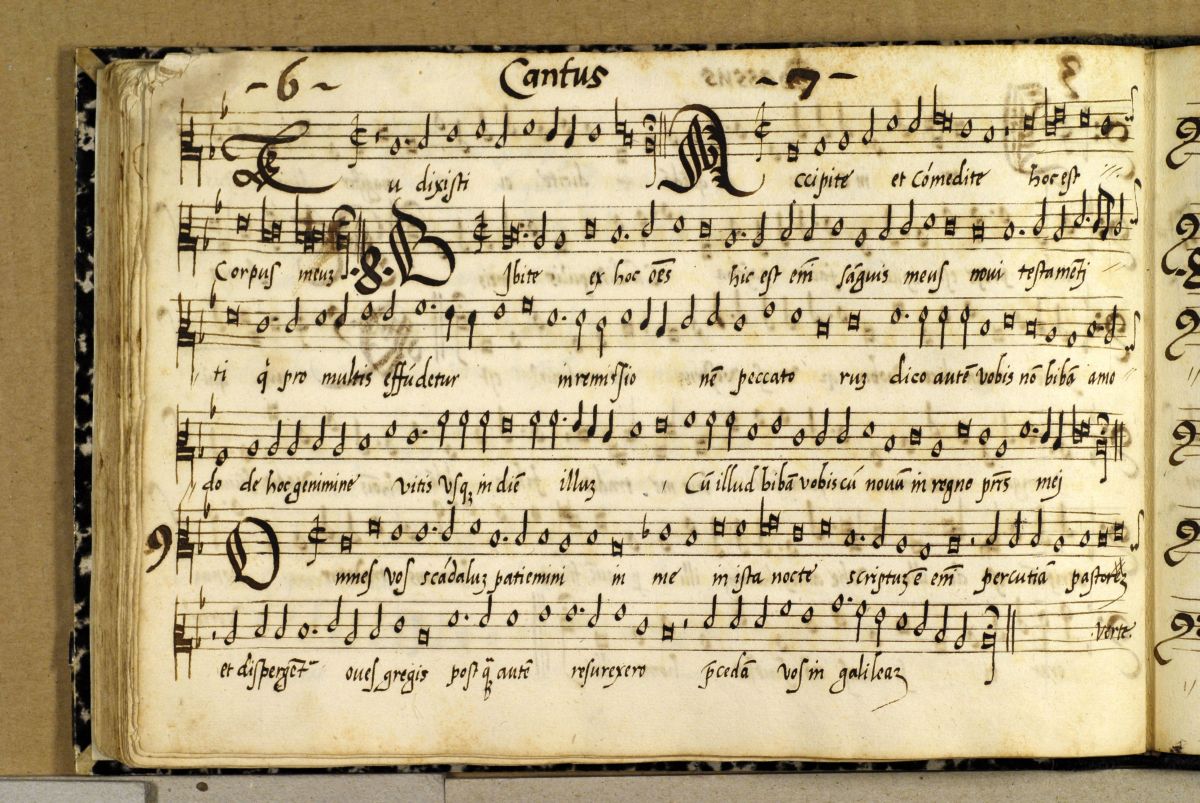 - 6 ~ Cantus - 7 -
Tu dixisti Accipite et cómedite hoc est
Corpus meuz .8. Bibite ex hoc oēs hic est em̄ sāguis meus novi testamēti
ti q̄ pro multis effūdetur in remissio nē peccato ruz dico autē vobis nō bibā amo
do de hoc genimine vitis usq; in diē illuz Cū illud bibā vobiscū novū in regno pr̄is mei
9 Omnes vos scādaluz patiemini in me in ista nocte scriptuz ē em̄ percutiā pastorez
verte
et dispergēt oves gregis post q̄ autē resurexero p̄cedā vos in galileaz